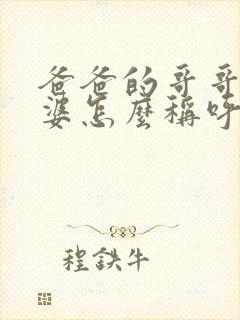 爸爸的哥哥
婆怎麼稱呼
程鉄牛